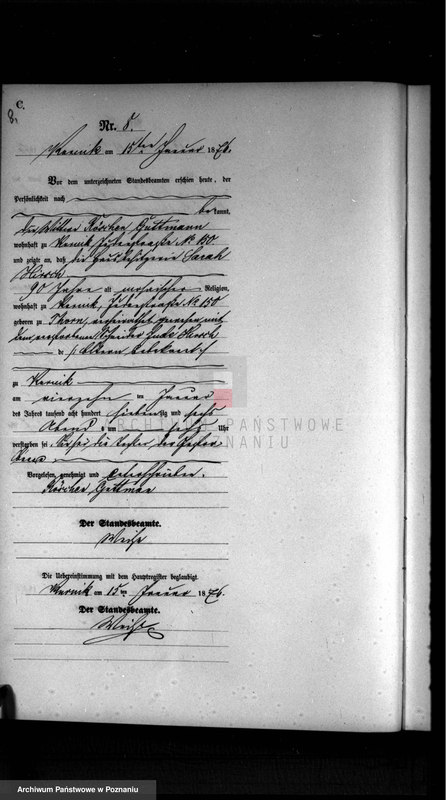 C.
8.
Nr. 8.
Kurnik am 15ten Januar 1876.
Vor dem unterzeichneten Standesbeamten erschien heute, der
Persönlichkeit nach
bekannt,
die Wittwe Röschen Guttmann
wohnhaft zu Kurnik, Judenstraße No 150
und zeigte an, daß die Hausbesitzerin Sarah
Hirsch
90 Jahre alt mosaischer Religion,
wohnhaft zu Kurnik, Judenstraße No 150
geboren zu Thorn, verheirathet gewesen mit
dem verstorbenen Hirsch
zu Kurnik
am vierzehn ten Januar
des Jahres tausend acht hundert siebenzig und sechs
Abends um sechs Uhr
verstorben sei
Vorgelesen, genehmigt und unterschrieben.
Röschen Guttman
Der Standesbeamte.
Die Uebereinstimmung mit dem Hauptregister beglaubigt.
Kurnik am 15ten Januar 1876.
Der Standesbeamte.
ARCHIWUM PAŃSTWOWE
W POZNANIU
Archiwum Państwowe w Poznaniu